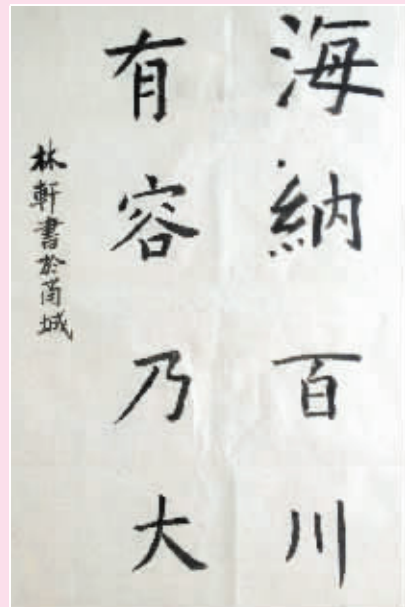 海納百川
有容乃大
林軒書於菌城